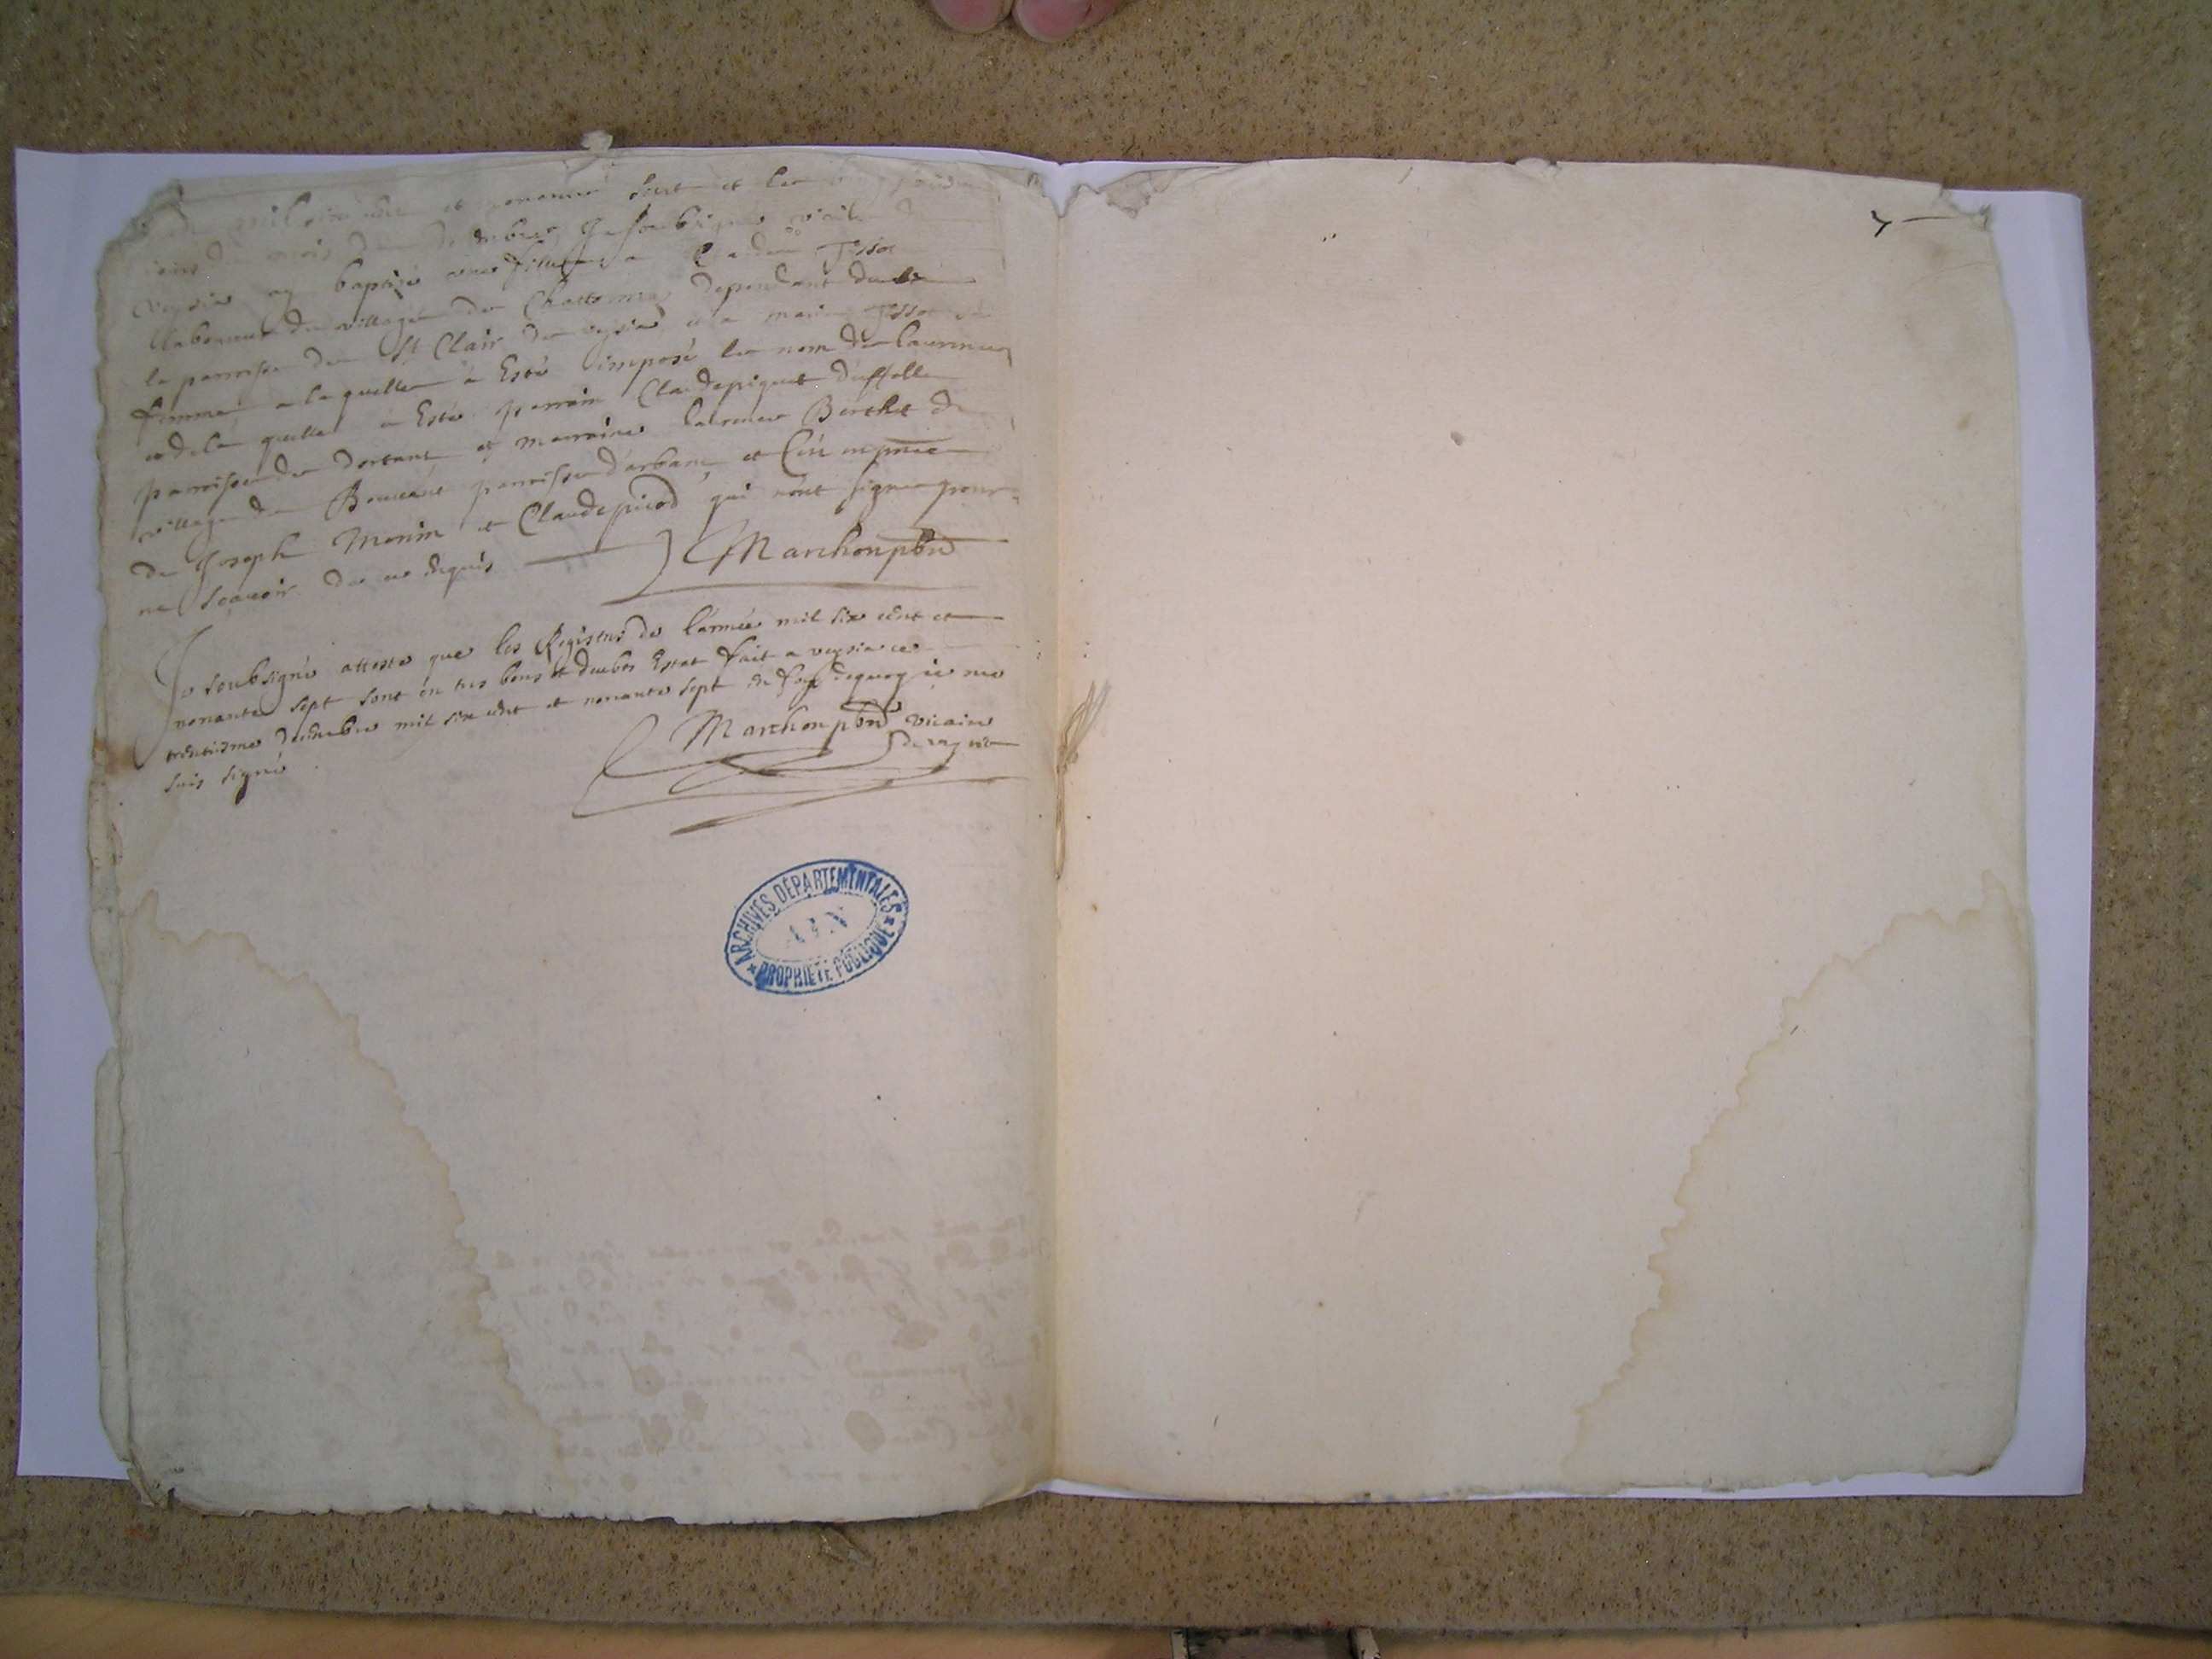 mil six cent et nonante sept et le
jour du mois de decembre Je soubsigné vicaire de
veysia ay baptisé une fille a Claude Tissot
laboureur du village de Chattonna dependant de
la parroisse de St Clair de veysia et a marie Tissot sa
femme a laquelle a Esté imposé le nom de laurence
et de la quelle a Esté parrain Claude piquet d'uffelle
parroisse de dortant et marraine laurence Berthet du
village de Bouceat parroisse d'arbant et En
de Joseph Monin et Claude picod qui n'ont signe pour
ne scavoir de ce enquis Marchon pbre
Je soubsigné atteste que les Registres de l'année mil six cent et
nonante sept sont en tres bons et deubs Estat fait a veysia ce
trentiesme decembre mil six cent et nonante sept en foy dequoy ie me
suis signé
Marchon pbre vicaire
de veysia
ARCHIVES DÉPARTEMENTALES
AIN
PROPRIÉTÉ PUBLIQUE
7